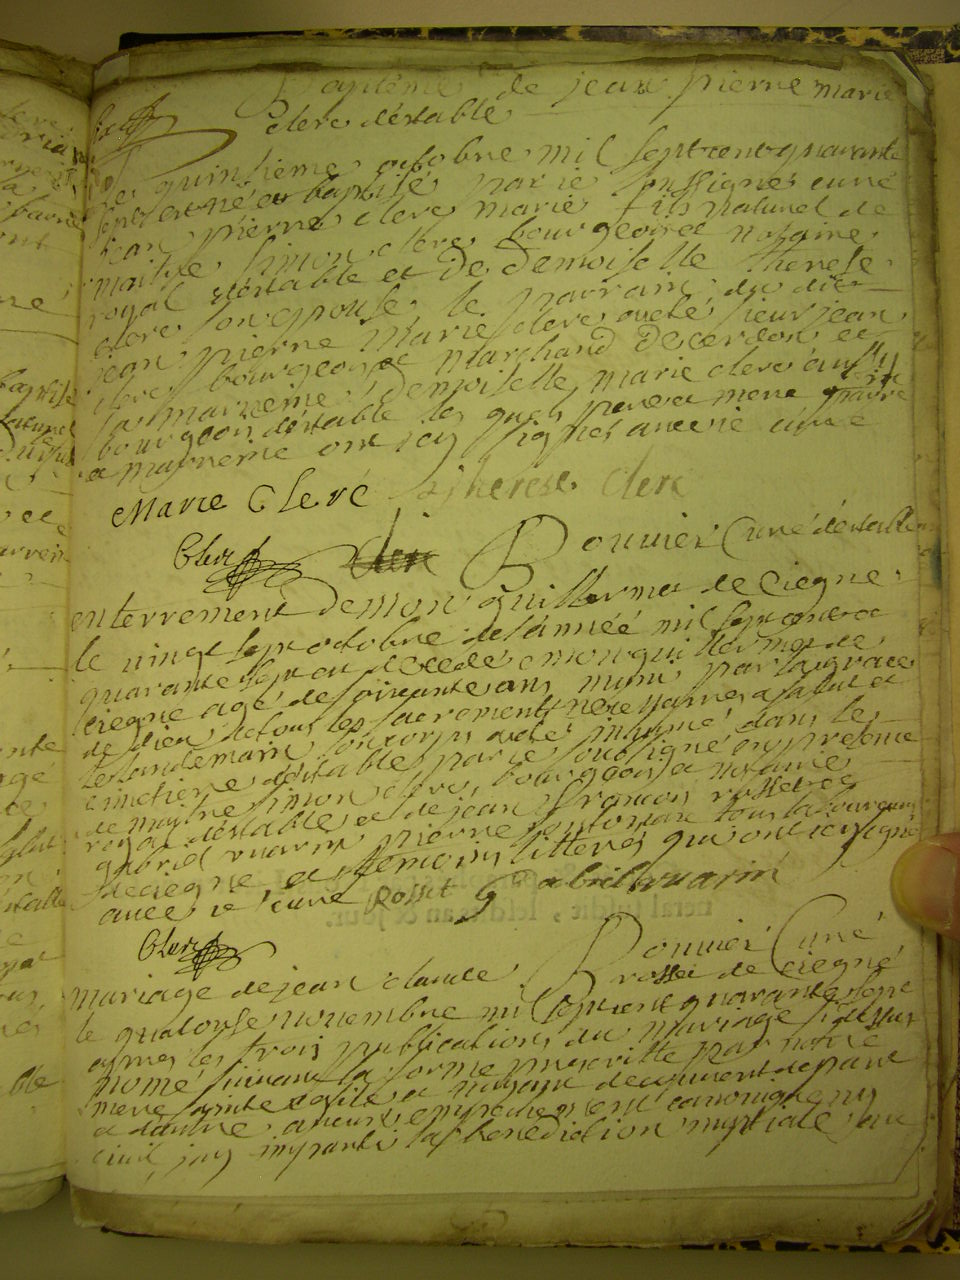 Baptême de jean pierre marie
clerc déstable
Le quinsieme octobre mil sept cent quarante
sept est né et baptisé par ie soussigné curé
jean pierre clerc marie fils naturel de
maitre simon clerc bourgeois et notaire
royal déstable et de Demoiselle therese
clerc son epouse le parrain du dit
jean pierre marie clerc a eté sieur jean
clerc bourgeois et marchand de cerdon et
la marreine Demoiselle marie clerc aussy
bourgeois déstable les quels pere et mere parrein
et marreine ont icy signés avec ie curé
Marie Clerc Therese Clerc
Clerc Clerc Bouvier Curé déstable
enterrement de mon guillermet de Ciegne
le vingt sept octobre de l'année mil sept cent
quarante sept est decedé emon guillermet de
Ciegne agé de soixante ans muni par la grace
de dieu de tous les sacrements necessaires a salut et
le landemain son corps a eté inhumé dans le
cimetiere déstable par ie soussigné en presence
de maitre simon clerc bourgeois et notaire
royal déstable et de jean francois rosset et
gabriel vuarin pierre tous laboureurs
de ciegne et temoins litterés qui ont icy signé
avec ie curé Rosset gabriel vuarin
Clerc Bouvier Curé
mariage de jean claude rosset de ciegne
le quatorse novembre mil sept cent quarante sept
apres les trois publications du mariage si dessus
nomé suivant la forme prescritte par notre
mere sainte eglise et n'ayant decouvert de part
et d'autre aucun empechement canonique ny
civil j'ay imparti la benediction nuptiale au